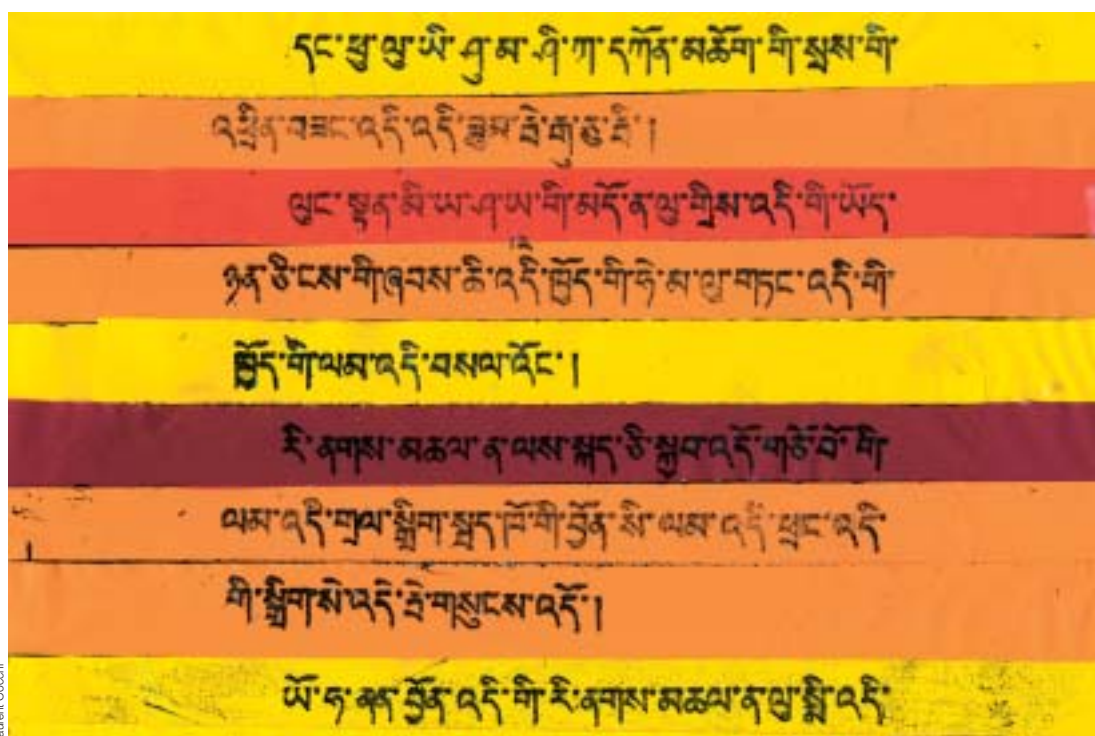 དང་ཕུ་ལུ་ཡི་ཤུ་མ་ཤི་ཀ་དཀོན་མཆོག་གི་སྲས་གི་
འཕྲིན་བཟང་འདི་འདི་
ལུང་སྟན་མི་ཡ་ཤ་ཡ་གི་མདོ་ན་ལུ་གྲིས་འདི་གི་ཡོད་
ཉན་ཅི་ངས་གི་ཞབས་ཆི་འདི་ཁྱོད་གི་ཧེ་མ་ལུ་གཏང་འདི་གི་
ཁྱོད་གི་ལམ་འདི་བསལ་འོང་།
རི་ནགས་མཚལ་ན་ལས་སྐད་ཅི་སྐྱབ་འདོ་གཙོ་བོ་གི་
ལམ་འདི་གྲལ་སྒྲིག་སྦད་ཁོ་གི་བྱོན་སི་ལམ་འདི་ཕྲང་འདི་
གི་སྒྲིག་སེ་འདི་ཟེ་གསུངས་འདོ་།
ཡོ་ཧ་ནན་བྱོན་འདི་གི་རི་ནགས་མཚལ་ན་ལུ་སྨི་འདི་